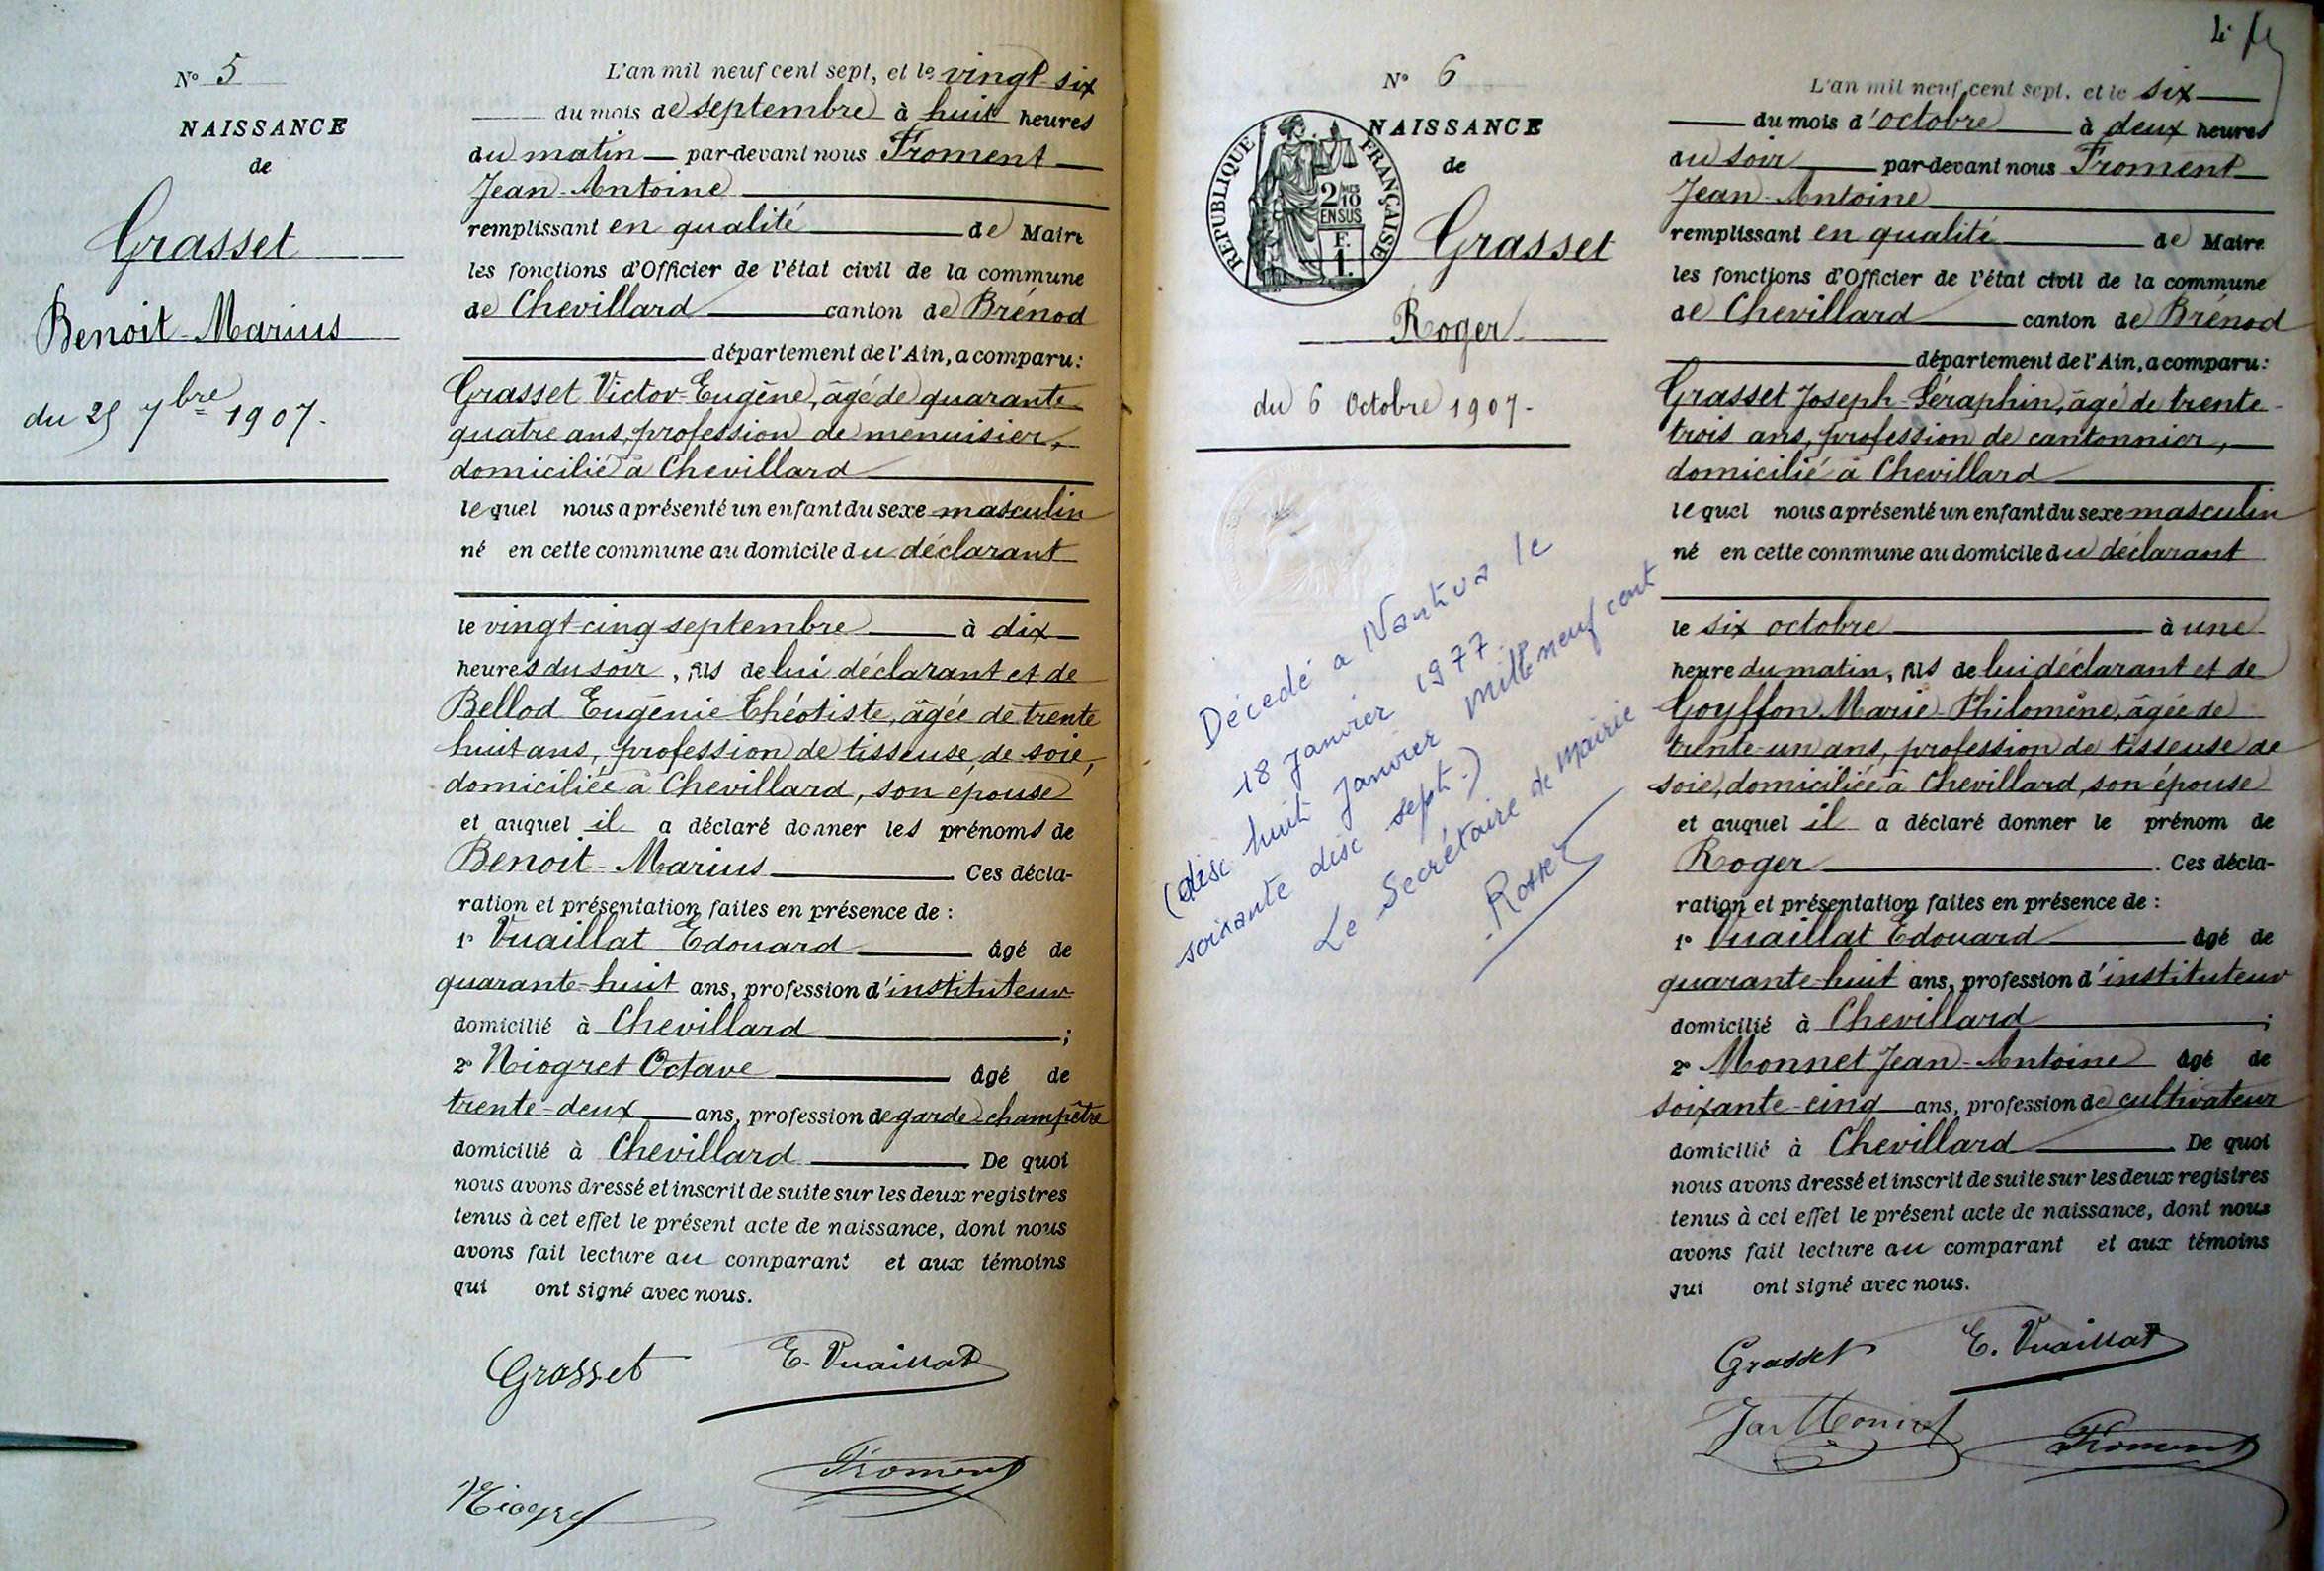 N° 5
NAISSANCE
de
Grasset
Benoit-Marius
du 25 7bre 1907.
L'an mil neuf cent sept, et le vingt-six
du mois de septembre à huit heures
du matin par-devant nous Froment
Jean-Antoine
remplissant en qualité de Maire
les fonctions d'Officier de l'état civil de la commune
de Chevillard canton de Brénod
département de l'Ain, a comparu:
Grasset Victor-Eugène, âgé de quarante
quatre ans, profession de menuisier,
domicilié à Chevillard
lequel nous a présenté un enfant du sexe masculin
né en cette commune au domicile du déclarant
le vingt-cinq septembre à dix
heures du soir, fils de lui déclarant et de
Bellod Eugénie Théotiste, âgée de trente
huit ans, profession de tisseuse de soie,
domiciliée à Chevillard, son épouse
et auquel il a déclaré donner les prénoms de
Benoit-Marius Ces décla-
ration et présentation faites en présence de :
1° Vuaillat Edouard âgé de
quarante-huit ans, profession d'instituteur
domicilié à Chevillard ;
2° Niogret Octave âgé de
trente-deux ans, profession de garde-champêtre
domicilié à Chevillard De quoi
nous avons dressé et inscrit de suite sur les deux registres
tenus à cet effet le présent acte de naissance, dont nous
avons fait lecture au comparant et aux témoins
qui ont signé avec nous.
Grasset E. Vuaillat
Niogret Froment
4
N° 6
NAISSANCE
de
RÉPUBLIQUE FRANÇAISE
2/10 MES
EN SUS
F.
1.
Grasset
Roger
du 6 Octobre 1907.
Décedé a Nantua le
18 Janvier 1977.
(disc huit Janvier mille neuf cent
soixante disc sept.)
Le Secrétaire de Mairie
L'an mil neuf cent sept, et le six
du mois d'octobre à deux heures
du soir par-devant nous Froment
Jean-Antoine
remplissant en qualité de Maire
les fonctions d'Officier de l'état civil de la commune
de Chevillard canton de Brénod
département de l'Ain, a comparu:
Grasset Joseph-Séraphin, âgé de trente-
trois ans, profession de cantonnier,
domicilié à Chevillard
lequel nous a présenté un enfant du sexe masculin
né en cette commune au domicile du déclarant
le six octobre à une
heure du matin, fils de lui déclarant et de
Goyffon Marie-Philomène, âgée de
trente-un ans, profession de tisseuse de
soie, domiciliée à Chevillard, son épouse
et auquel il a déclaré donner le prénom de
Roger . Ces décla-
ration et présentation faites en présence de :
1° Vuaillat Edouard âgé de
quarante-huit ans, profession d'instituteur
domicilié à Chevillard ;
2° Monnet Jean-Antoine âgé de
soixante-cinq ans, profession de cultivateur
domicilié à Chevillard De quoi
nous avons dressé et inscrit de suite sur les deux registres
tenus à cet effet le présent acte de naissance, dont nous
avons fait lecture au comparant et aux témoins
qui ont signé avec nous.
Grasset E. Vuaillat
Froment